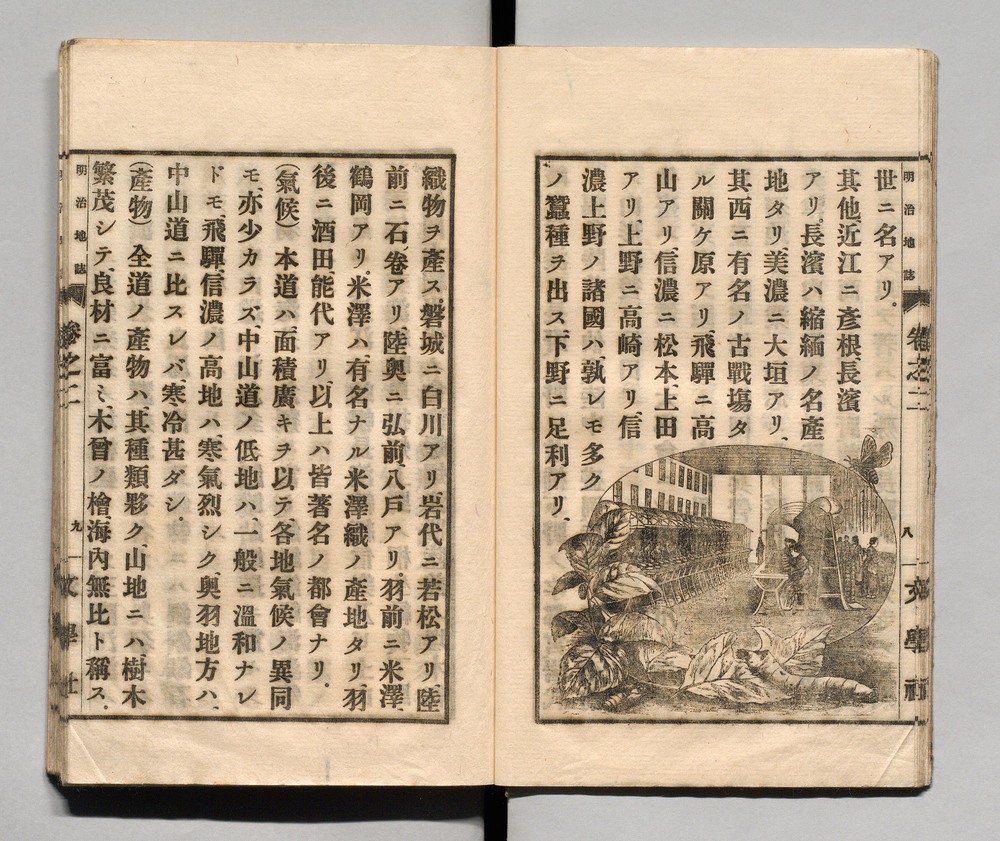 明治地誌 卷之二 八 文學社
世ニ名アリ。
其他、近江ニ彥根、長濱
アリ。長濱ハ縮緬ノ名產
地タリ、美濃ニ大垣アリ、
其西ニ有名ノ古戰塲タ
ル關ケ原アリ、飛驒ニ高
山アリ、信濃ニ松本、上田
アリ、上野ニ高崎アリ、信
濃上野ノ諸國ハ、孰レモ多ク
ノ蠶種ヲ出ス、下野ニ足利アリ、
織物ヲ產ス。磐城ニ白川アリ、岩代ニ若松アリ、陸
前ニ石卷アリ、陸奧ニ弘前、八戶アリ。羽前ニ米澤、
鶴岡アリ。米澤ハ、有名ナル米澤織ノ產地タリ、羽
後ニ酒田、能代アリ、以上ハ皆著名ノ都會ナリ。
(氣候) 本道ハ、面積廣キヲ以テ、各地氣候ノ異同
モ、亦少カラズ、中山道ノ低地ハ、一般ニ溫和ナレ
ドモ、飛驒、信濃ノ高地ハ、寒氣烈シク、奧羽地方ハ、
中山道ニ比スレバ、寒冷甚ダシ。
(產物) 全道ノ產物ハ、其種類夥ク、山地ニハ、樹木
繁茂シテ、良材ニ富ミ、木曾ノ檜、海內無比ト稱ス。
明治地誌 卷之二 九 文學社